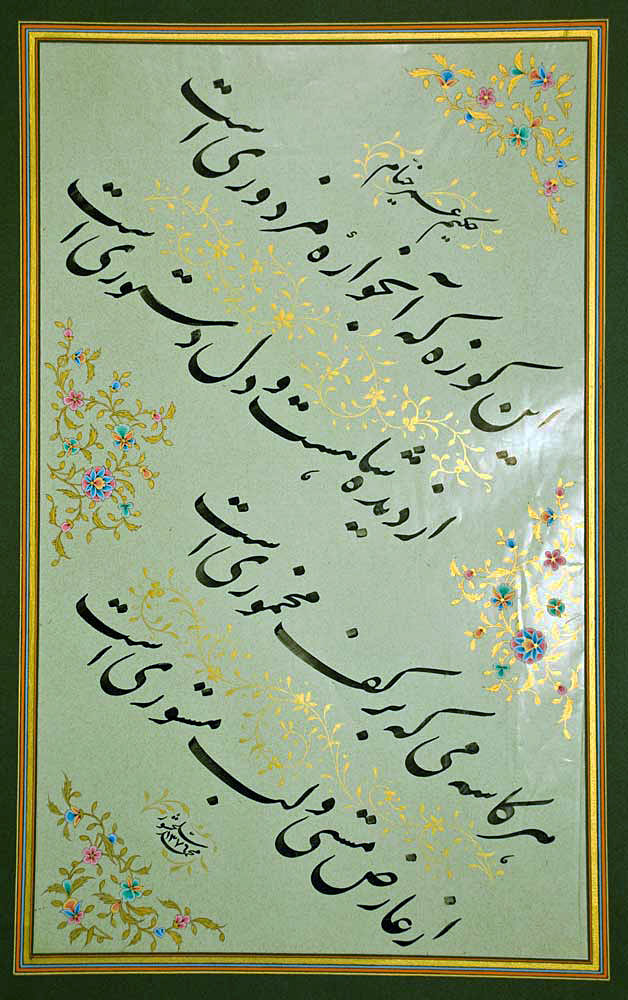 حکیم عمر خیّام
این کوزه که آبخوارهٔ مزدوری است
از دیده شاهیست و دل دستوری است
هر کاسه می که بر کف مخموری است
از عارض مستی و لب مستوری است
سلحشور